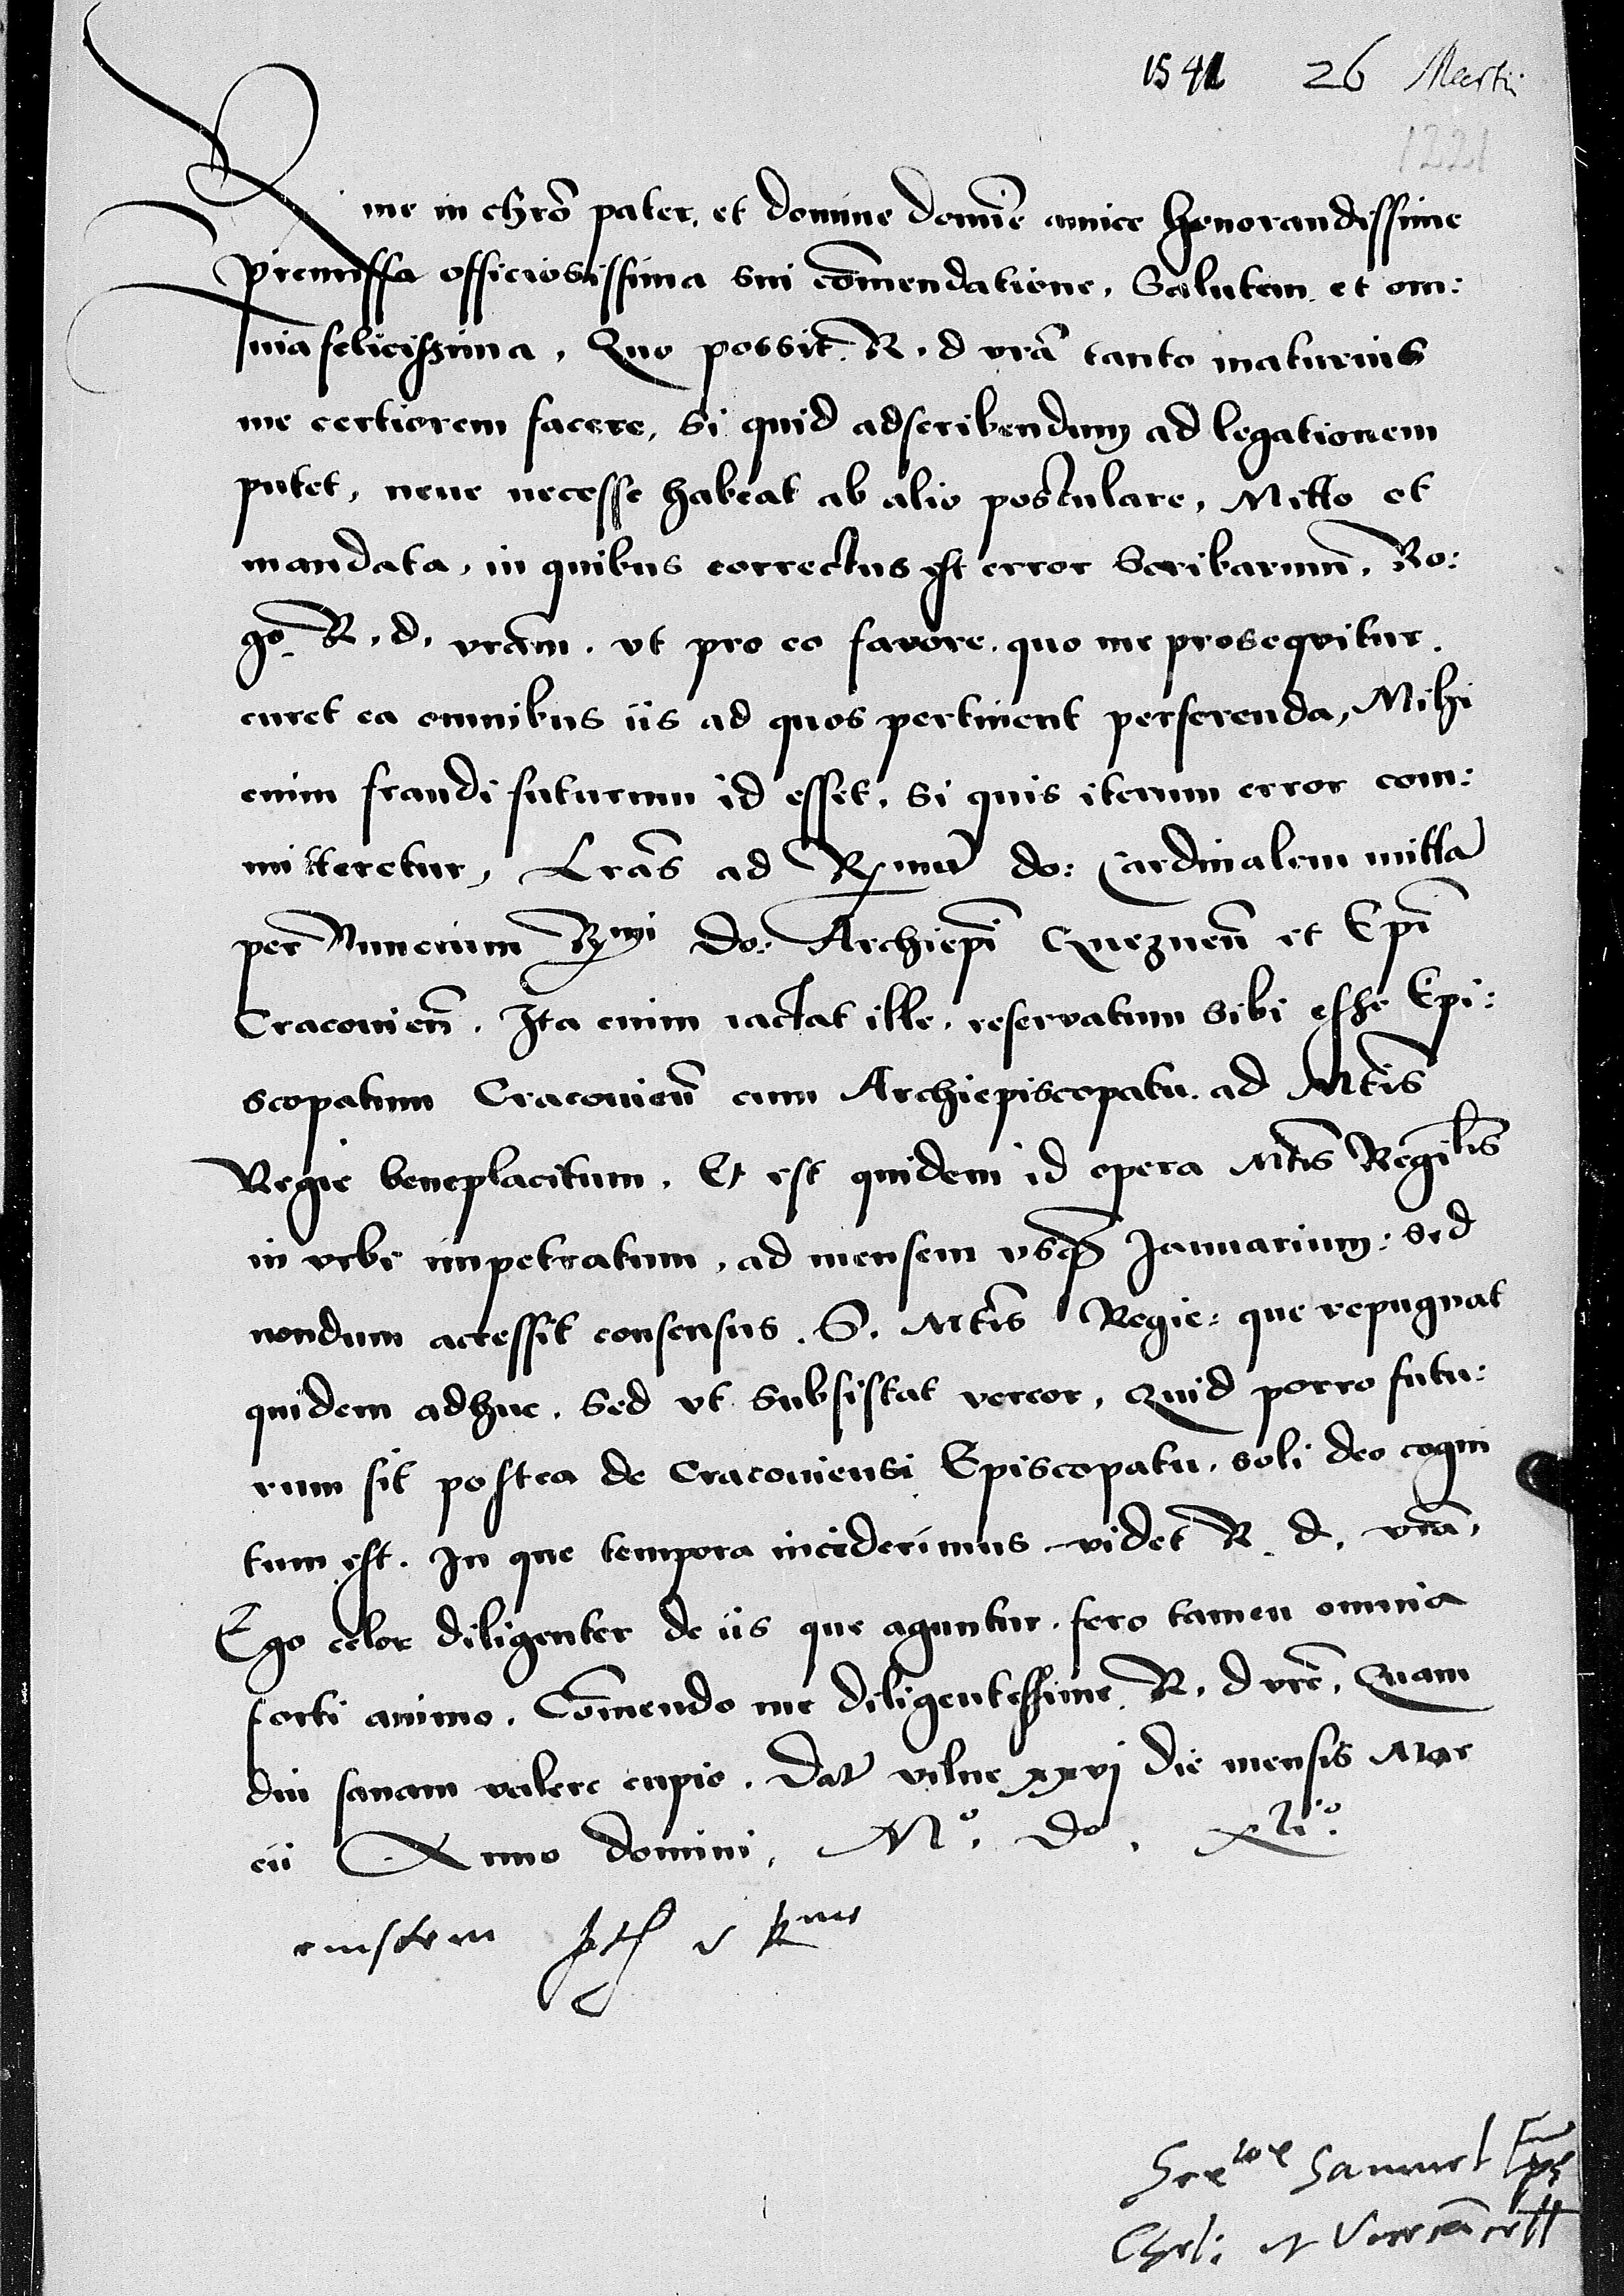 1541 26 Martii
1221
Rme in chrō pater. et domine domīe amice honorandissime
premissa officiosissima sui cōmendatione. Salutem et om:
nia felicissima. Quo possit R. d vrā tanto maturius
me certiorem facere, si quid adscribendum ad legationem
putet, neue necesse habeat ab alio postulare, Mitto et
mandata, in quibus correctus est error scribarum. Ro:
go R. d. vrām. vt pro eo favore quo me prosequitur.
curet ea omnibus iis ad quos pertinent perferenda, Mihi
enim fraudi futurum id esset, si quis iterum error com:
mitteretur, Lrās ad Rmū do: Cardinalem mittā
per Nuncium Rmi do: Archiepī Gneznēn et Epī
Cracoviēn. Ita enim iactat ille, reservatum sibi esse Epi:
scopatum Cracoviēn cum Archiepiscopatu. ad Mtis
Regie beneplacitum. Et est quidem id opera Mtis Regilis
in vrbe impetratum, ad mensem vsq Januarium: sed
nondum accessit consensus. S. Mtis Regie: que repugnat
quidem adhuc. sed vt subsistat vereor, Quid porro futu:
rum sit postea de Cracoviensi Episcopatu. soli deo cogni
tum est. In que tempora inciderimus videt R. d. vrā.
Ego celor diligenter de iis que aguntur. fero tamen omnia
forti animo. Cōmendo me diligentissime R. d vrē. Quam
diu sanam valere cupio. Dat vilne xxvj die mensis Mar
cii Anno domini. Mo. Do. xlio.
eiusdem v Rme
Samuel Eps